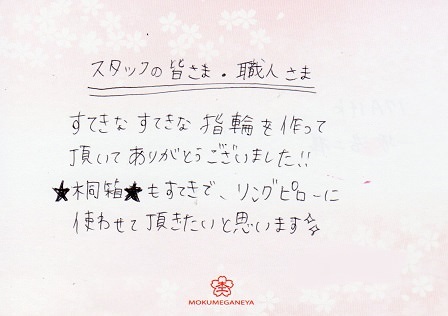 スタッフの皆さま・職人さま
すてきな すてきな 指輪を作って
頂いて ありがとうございました!!
★桐箱★もすてきで、リングピローに
使わせて頂きたいと思います☆
MOKUMEGANEYA